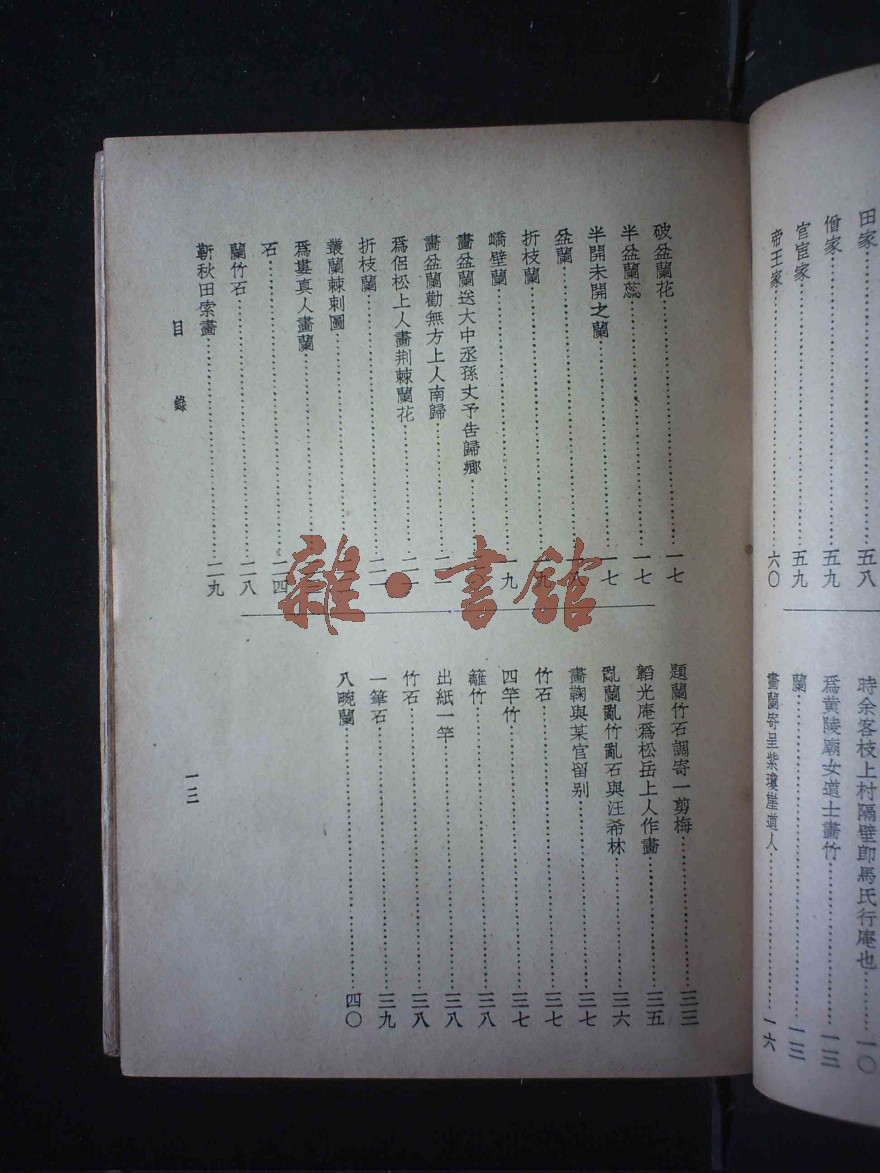 田家⋯⋯五八
僧家⋯⋯五九
官宦家⋯⋯五九
帝王家⋯⋯六〇
時余客枝上村隔壁即馬氏行庵也⋯⋯一〇
爲黄陵廟女道士畫竹⋯⋯一三
蘭⋯⋯一三
畫蘭寄呈紫瓊崖道人⋯⋯一六
破盆蘭花⋯⋯一七
半盆蘭蕊⋯⋯一七
半開未開之蘭⋯⋯一七
盆蘭⋯⋯一八
折枝蘭⋯⋯一九
嶠壁蘭⋯⋯一九
畫盆蘭送大中丞孫丈予告歸鄉⋯⋯
畫盆蘭勸無方上人南歸⋯⋯
爲侶松上人畫荆棘蘭花⋯⋯二一
折枝蘭⋯⋯
叢蘭棘刺圖⋯⋯
爲婁真人畫蘭⋯⋯
石⋯⋯二四
蘭竹石⋯⋯二八
靳秋田索畫⋯⋯二九
題蘭竹石調寄一剪梅⋯⋯三三
韜光庵爲松岳上人作畫⋯⋯三五
亂蘭亂竹亂石與汪希林⋯⋯三六
畫鞠與某官留别⋯⋯三七
竹石⋯⋯三七
四竿竹⋯⋯三七
籬竹⋯⋯三八
出紙一竿⋯⋯三八
竹石⋯⋯三八
一筆石⋯⋯三九
八畹蘭⋯⋯四〇
目錄
一三
雜·書館